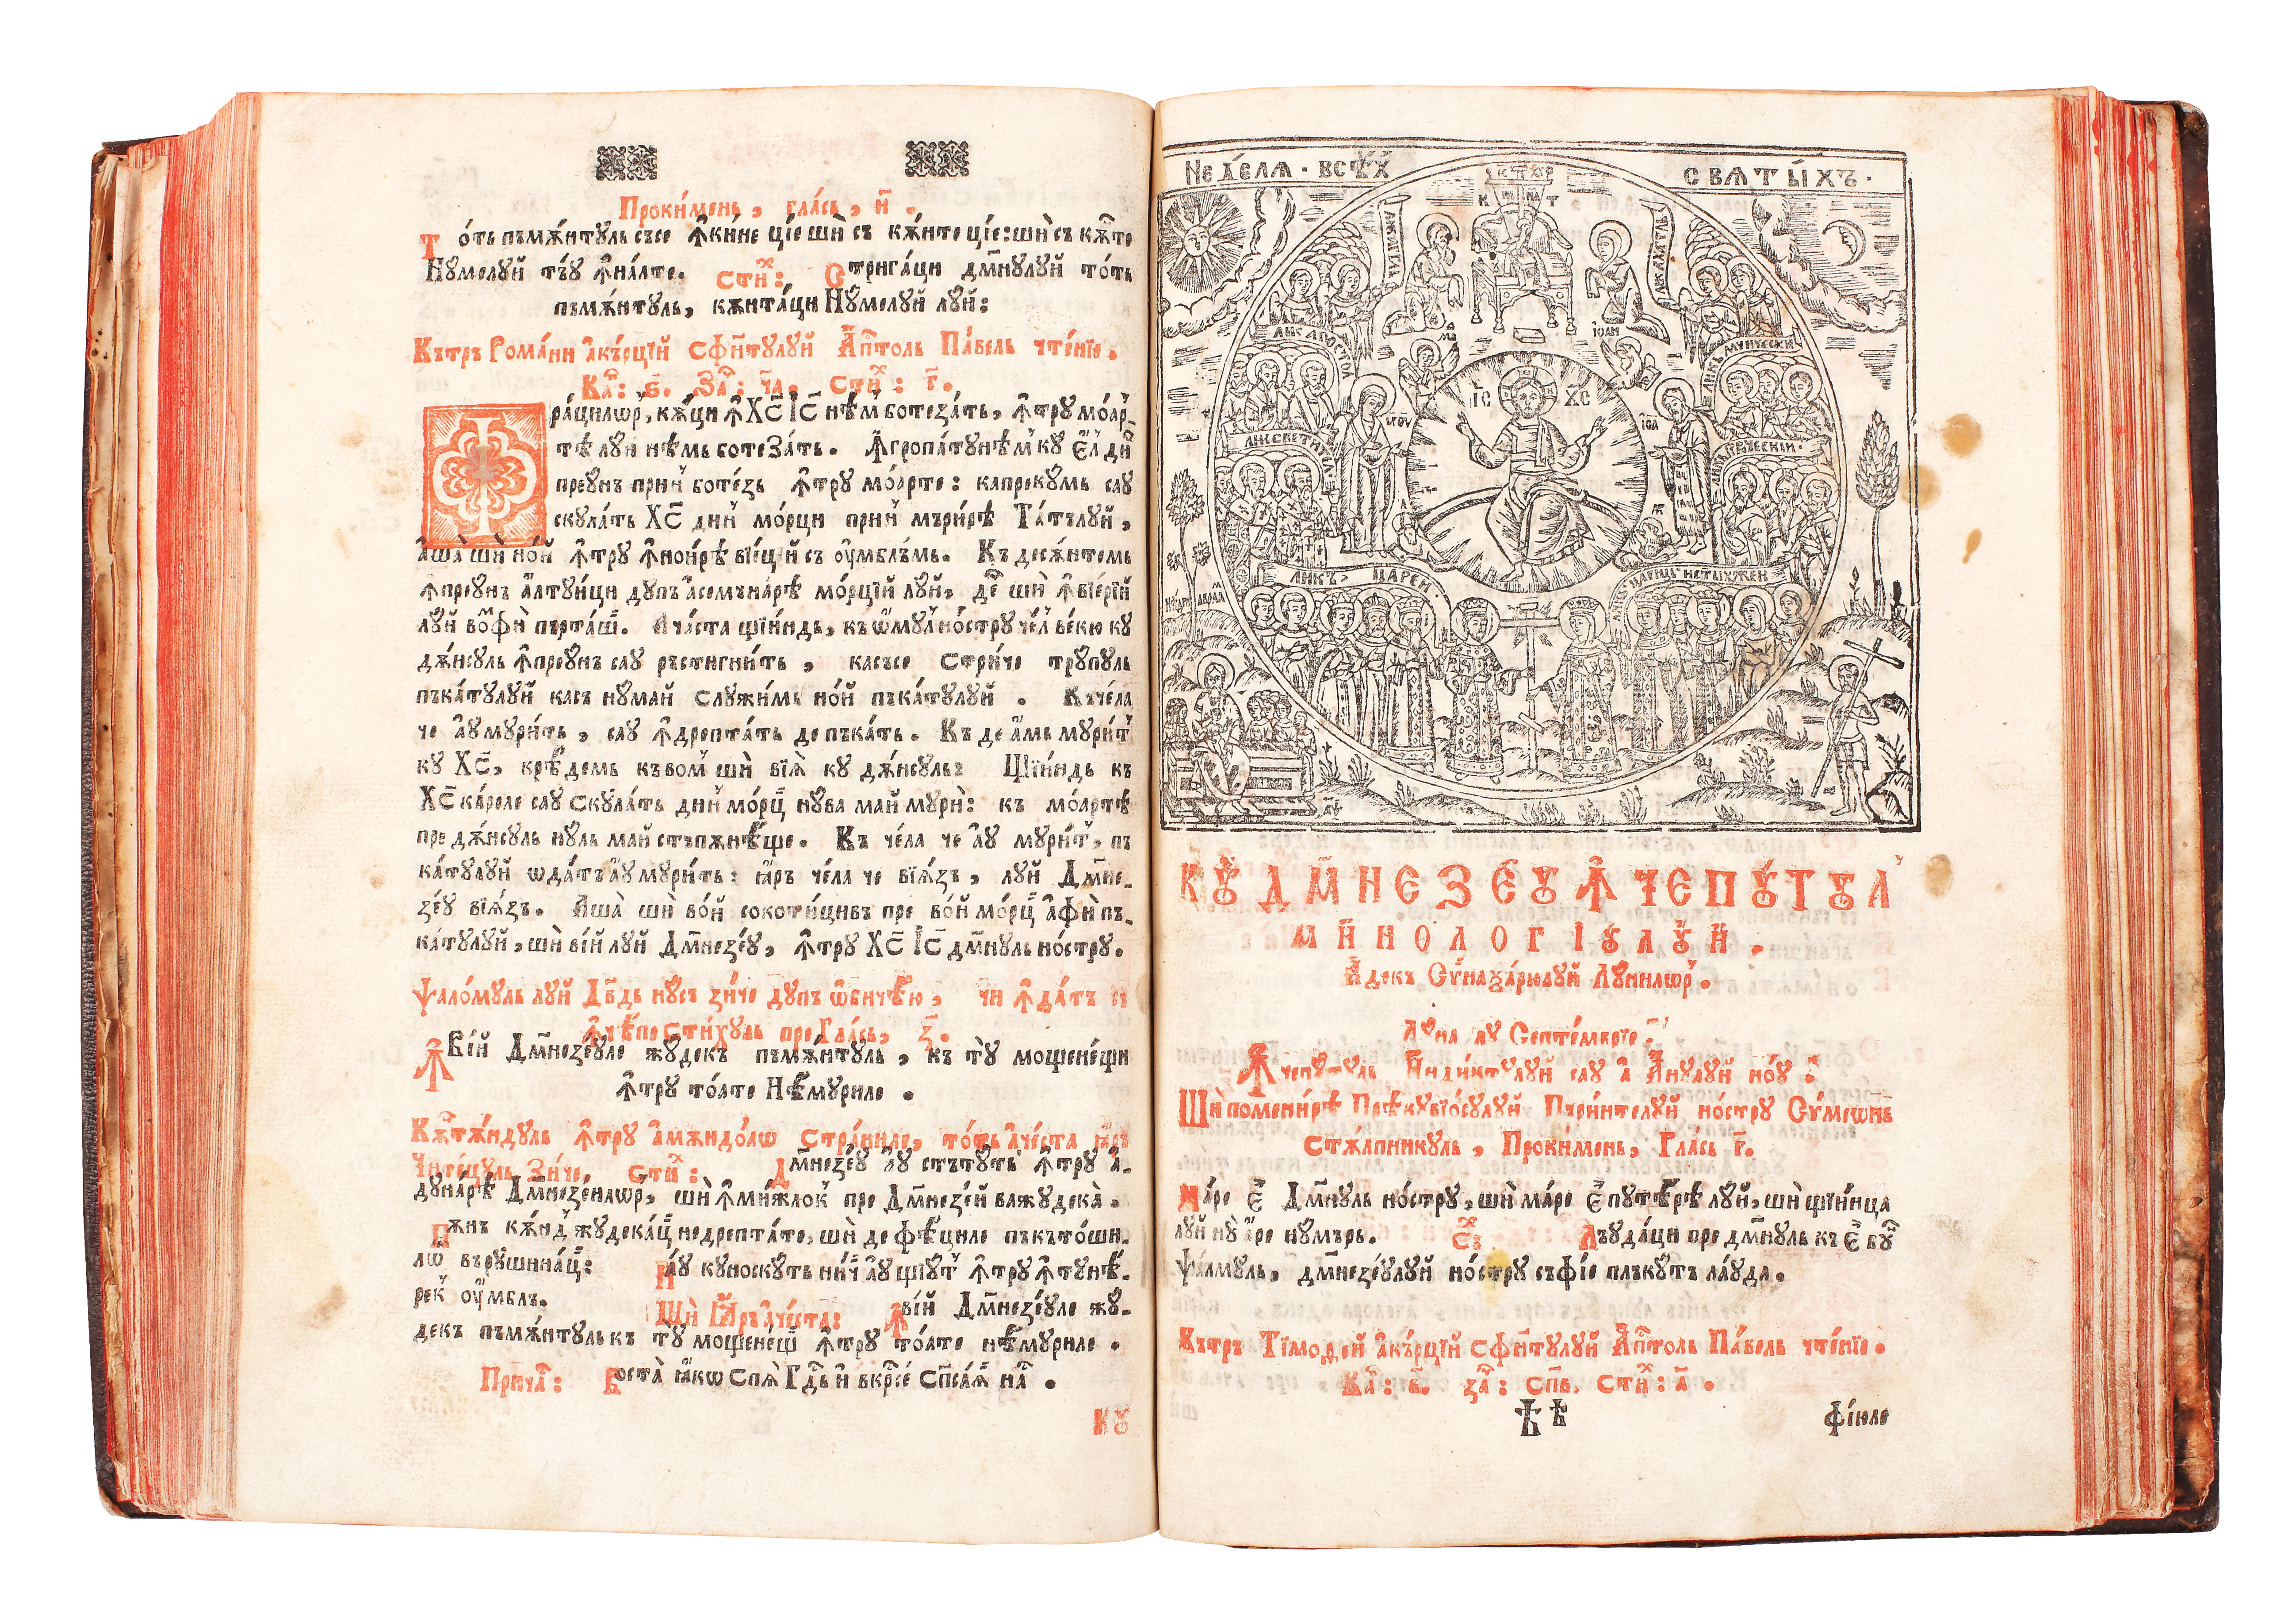 Проки́менъ, гла́съ, и҃.
Тотъ пъмѫ́нтꙋль съсе ꙟкине ці́е шѝ съ кѫ́нте ці́е: шѝ съ кѫ́те
Нꙋ́мелꙋй тъ́ꙋ ꙟна́лте. Сти́х: Стрига́ци дм҃нꙋлꙋй то́тъ
пъмѫ́нтꙋль, кѫнта́ци Нꙋ́мелꙋй лꙋй:
Кътръ Рома́ни а҆къ́рцїй сфн҃тꙋлꙋй Ап҃толь Па́велъ чте́нїе.
Ка҃: ѕ҃. За҃: ч҃а. Сти́х: г҃.
Фра́цилѡр, кѫ́ци ꙟ Хс҃ Іс҃ нѣм ботеза́тъ, ꙟтрꙋ мо́ар-
тѣ лꙋй нѣмь ботеза́тъ. Ꙟгропа́тꙋнѣм кꙋ є҆́л ди
преꙋ́нъ при́н боте́зъ ꙟтрꙋ мо́арте: капрекꙋмъ саꙋ
скꙋла́тъ Хс҃ ди́н мо́рци при́н мъри́рѣ Та́тълꙋй,
а҆ша̀ шѝ но́й ꙟтрꙋ ꙟнои́рѣ вїе́цїй съ ꙋмблъ́мь. Къ десѫ́нтемь
ꙟпреꙋ́нъ алтꙋи́ци дꙋпъ асемъна́рѣ мо́рцїй лꙋй, де шѝ ꙟвїе́рїй
лꙋй во́мфѝ пърта́ш. Ача́ста щїи́ндь, къ ѡ҆мꙋл но́стрꙋ че́л ве́кю кꙋ
дѫ́нсꙋль ꙟпреꙋ́нъ саꙋ ръстигни́тъ, касъсе стри́че трꙋпꙋль
пъка́тꙋлꙋй касъ нꙋмай слꙋжи́мь но́й пъка́тꙋлꙋй. Къче́ла
че аꙋ мꙋри́тъ, саꙋ ꙟдрепта́тъ де пъка́тъ. Къ де а҆мь мꙋри́т
кꙋ Хс҃, кре́демь къ вом шѝ вїѧ̀ кꙋ дѫ́нсꙋль: Щїи́ндь къ
Хс҃ ка́реле саꙋ скꙋла́тъ ди́н мо́рц нꙋва май мꙋрѝ: къ мо́артѣ
пре дѫ́нсꙋль нꙋль май стъпѫнѣ́ще. Къ че́ла че аꙋ мꙋри́т, пъ
ка́тꙋлꙋй ѡдатъ аꙋ мꙋри́тъ: ꙗръ че́ла че вїѧ́зъ, лꙋй Дм҃не-
зе́ꙋ вїѧ́зъ. Аша̀ шѝ во́й сокоти́цивъ пре во́й мо́рц а҆ фѝ пъ-
ка́тꙋлꙋй, шѝ ві́й лꙋй Дм҃незе́ꙋ, ꙟтрꙋ Хс҃ Іс҃ дм҃нꙋль но́стрꙋ.
Ѱало́мꙋль лꙋй Дв҃дь нꙋсъ зи́че дꙋпъ ѡбиче́ю, чи ꙟда́тъ се
ꙟче́пе Сти́хꙋль пре Гла́съ, з҃.
Ꙟві́й Дм҃незе́ꙋле жꙋ́декъ пъмѫ́нтꙋль, къ тꙋ̀ мощене́щи
ꙟтрꙋ то́ате Нѣ́мꙋриле.
Кѫ́нтѫндꙋль ꙟтрꙋ амѫндо́лѡ стра́ниле, то́тъ аче́ста ꙗръ
Чите́цꙋль Зи́че, сти́х: Дм҃незе́ꙋ аꙋ стъ́тꙋтъ ꙟтрꙋ а-
дꙋна́рѣ Дм҃незе́илѡр, шѝ ꙟми́жлок пре Дм҃незе́й ва жꙋдека̀.
Пѫнъ кѫ́нд жꙋдека́ц недрепта́те, шѝ де фѣ́циле пъкъто́ши-
лѡ въ рꙋшина́ц: Наꙋ кꙋноскꙋтъ ни́ч аꙋ щїꙋт ꙟтрꙋ ꙟтꙋнѣ-
рек ꙋмблъ. Шѝ Ꙗръ аче́ста: Ꙟві́й Дм҃незе́ꙋле жꙋ-
декъ пъмѫ́нтꙋль къ тꙋ̀ мощене́щ ꙟтрꙋ то́ате нѣ́мꙋриле.
Прича҃: Воста̀ ꙗкѡ спѧ̀ Гд҃ь и вкр҃се́ сп҃са́ѧ на҃.
Кꙋ
НЕДѢЛѦ · ВСѢ́Х СВѦТЫ́ХЪ ·
ІС ХС
ЛИКЪ ЦАРЕИ
КꙊ ДМ҃НЕЗЕ́Ꙋ Ꙟ ЧЕПꙊ́ТꙊЛ
МИ҃НОЛОГІꙊЛꙊЙ.
А́декъ Сѵ́наѯа́рюлꙋй Лꙋ́нилѡр.
Лꙋна лꙋ Септе́мврїе:
Ꙟчепꙋ́тꙋль Инди́ктꙋлꙋй саꙋ а А́нꙋлꙋй но́ꙋ:
Шѝ помени́рѣ Прѣкꙋвїо́сꙋлꙋй Пъри́нтелꙋй но́стрꙋ Сѵ́меѡ́нъ
стѫ́лпникꙋль, Проки́менъ, Гла́съ г҃.
Ма́ре є҆ Дм҃нꙋль но́стрꙋ, шѝ ма́ре є҆ пꙋте́рѣ лꙋй, шѝ щїи́нца
лꙋй нꙋ̀ а́ре нꙋ́мъръ. С: Лъꙋда́ци пре дм҃нꙋль къ є҆ бꙋ
Ѱа́лмꙋль, дм҃незе́ꙋлꙋй но́стрꙋ съ фі́е плъкꙋ́тъ ла́ꙋда.
Кътръ Тїмоѳе́й а҆къ́рцїй сфн҃тꙋлꙋй Ап҃толь Па́велъ чте́нїе.
Ка҃: в҃. за҃: сп҃в. сти́х: а҃.
Ѣ ѣ фі́юле